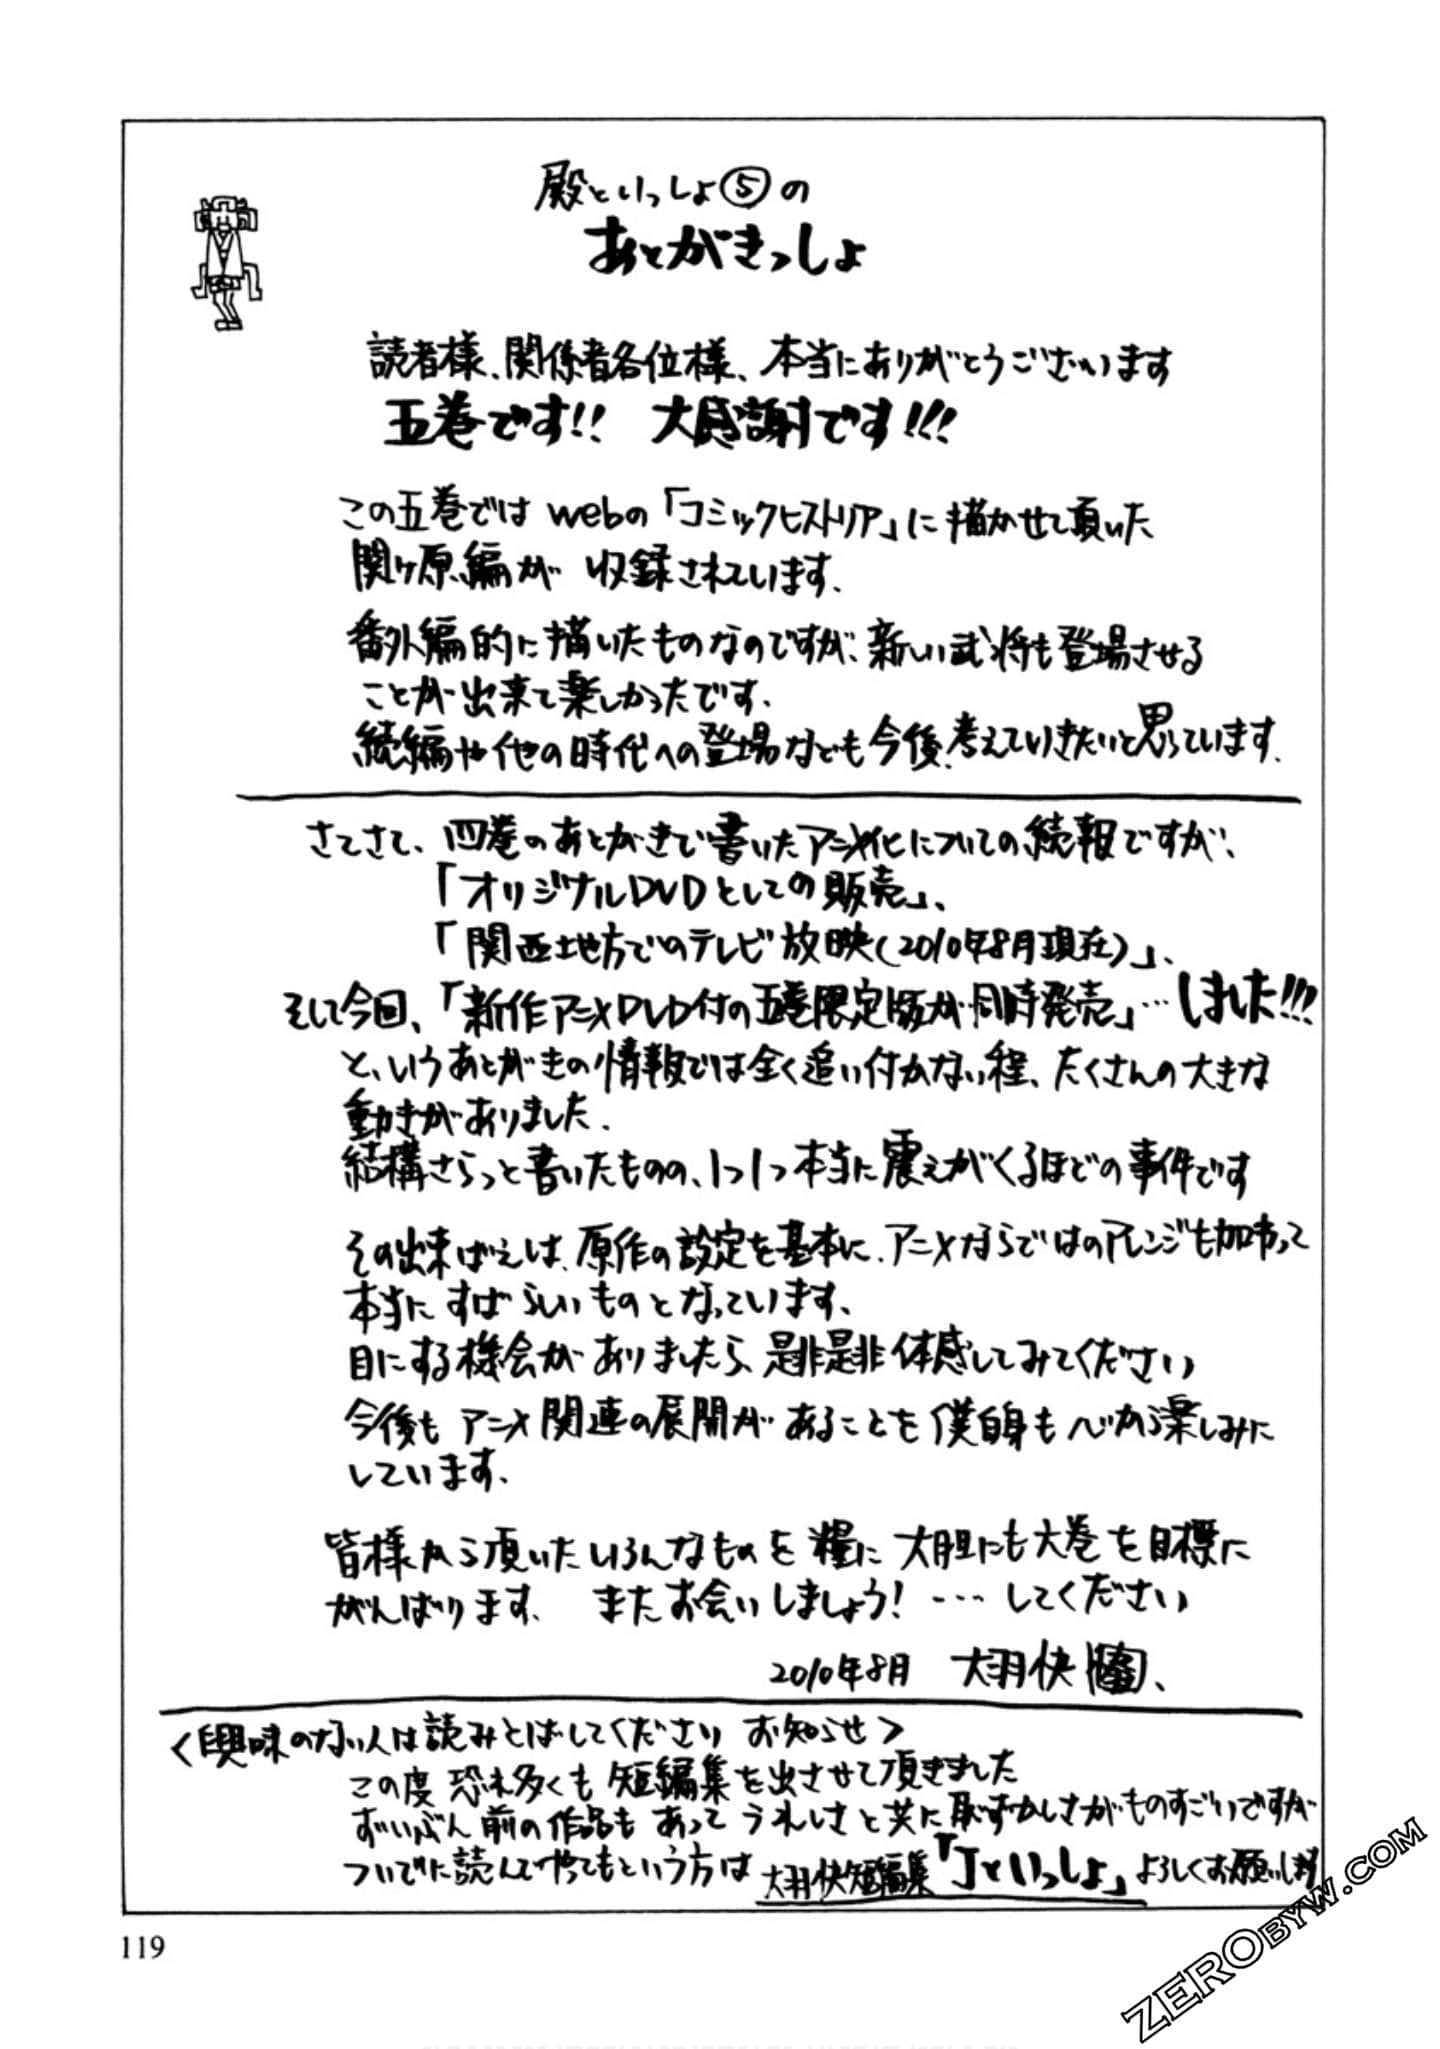 殿といっしょ⑤の
あとがきっしょ
読者様、関係者各位様、本当にありがとうございます
五巻です!! 大感謝です!!!
この五巻ではwebの「コミックヒストリア」に描かせて頂いた
関ヶ原編が収録されています.
番外編的に描いたものなのですが、新しい武将も登場させる
ことが出来て楽しかったです.
続編や他の時代への登場なども今後、考えていきたいと思っています.
さてさて、四巻のあとがきで書いたアニメ化についての続報ですが、
「オリジナルDVDとしての販売」、
「関西地方でのテレビ放映(2010年8月現在)」、
そして今回、「新作アニメDVD付の五巻限定版が同時発売」…しました!!!
と、いうあとがきの情報では全く追い付かない程、たくさんの大きな
動きがありました.
結構さらっと書いたものの、1つ1つ本当に震えがくるほどの事件です
その出来ばえは、原作の設定を基本に、アニメならではのアレンジも加わって
本当にすばらしいものとなっています、
目にする機会がありましたら、是非是非体感してみてください
今後もアニメ関連の展開があることを僕自身も心から楽しみに
しています.
皆様から頂いたいろんなものを糧に大胆にも大巻を目標に
がんばります. またお会いしましょう! ……してください
2010年8月 大羽快
<興味のない人は読みとばしてください お知らせ>
この度恐れ多くも短編集を出させて頂きました
ずいぶん前の作品もあってうれしさと共に恥ずかしさがものすごいですが
ついでに読んでやってもという方は 大羽快短編集「Jといっしょ」よろしくお願いします
119
ZEROBYW.COM